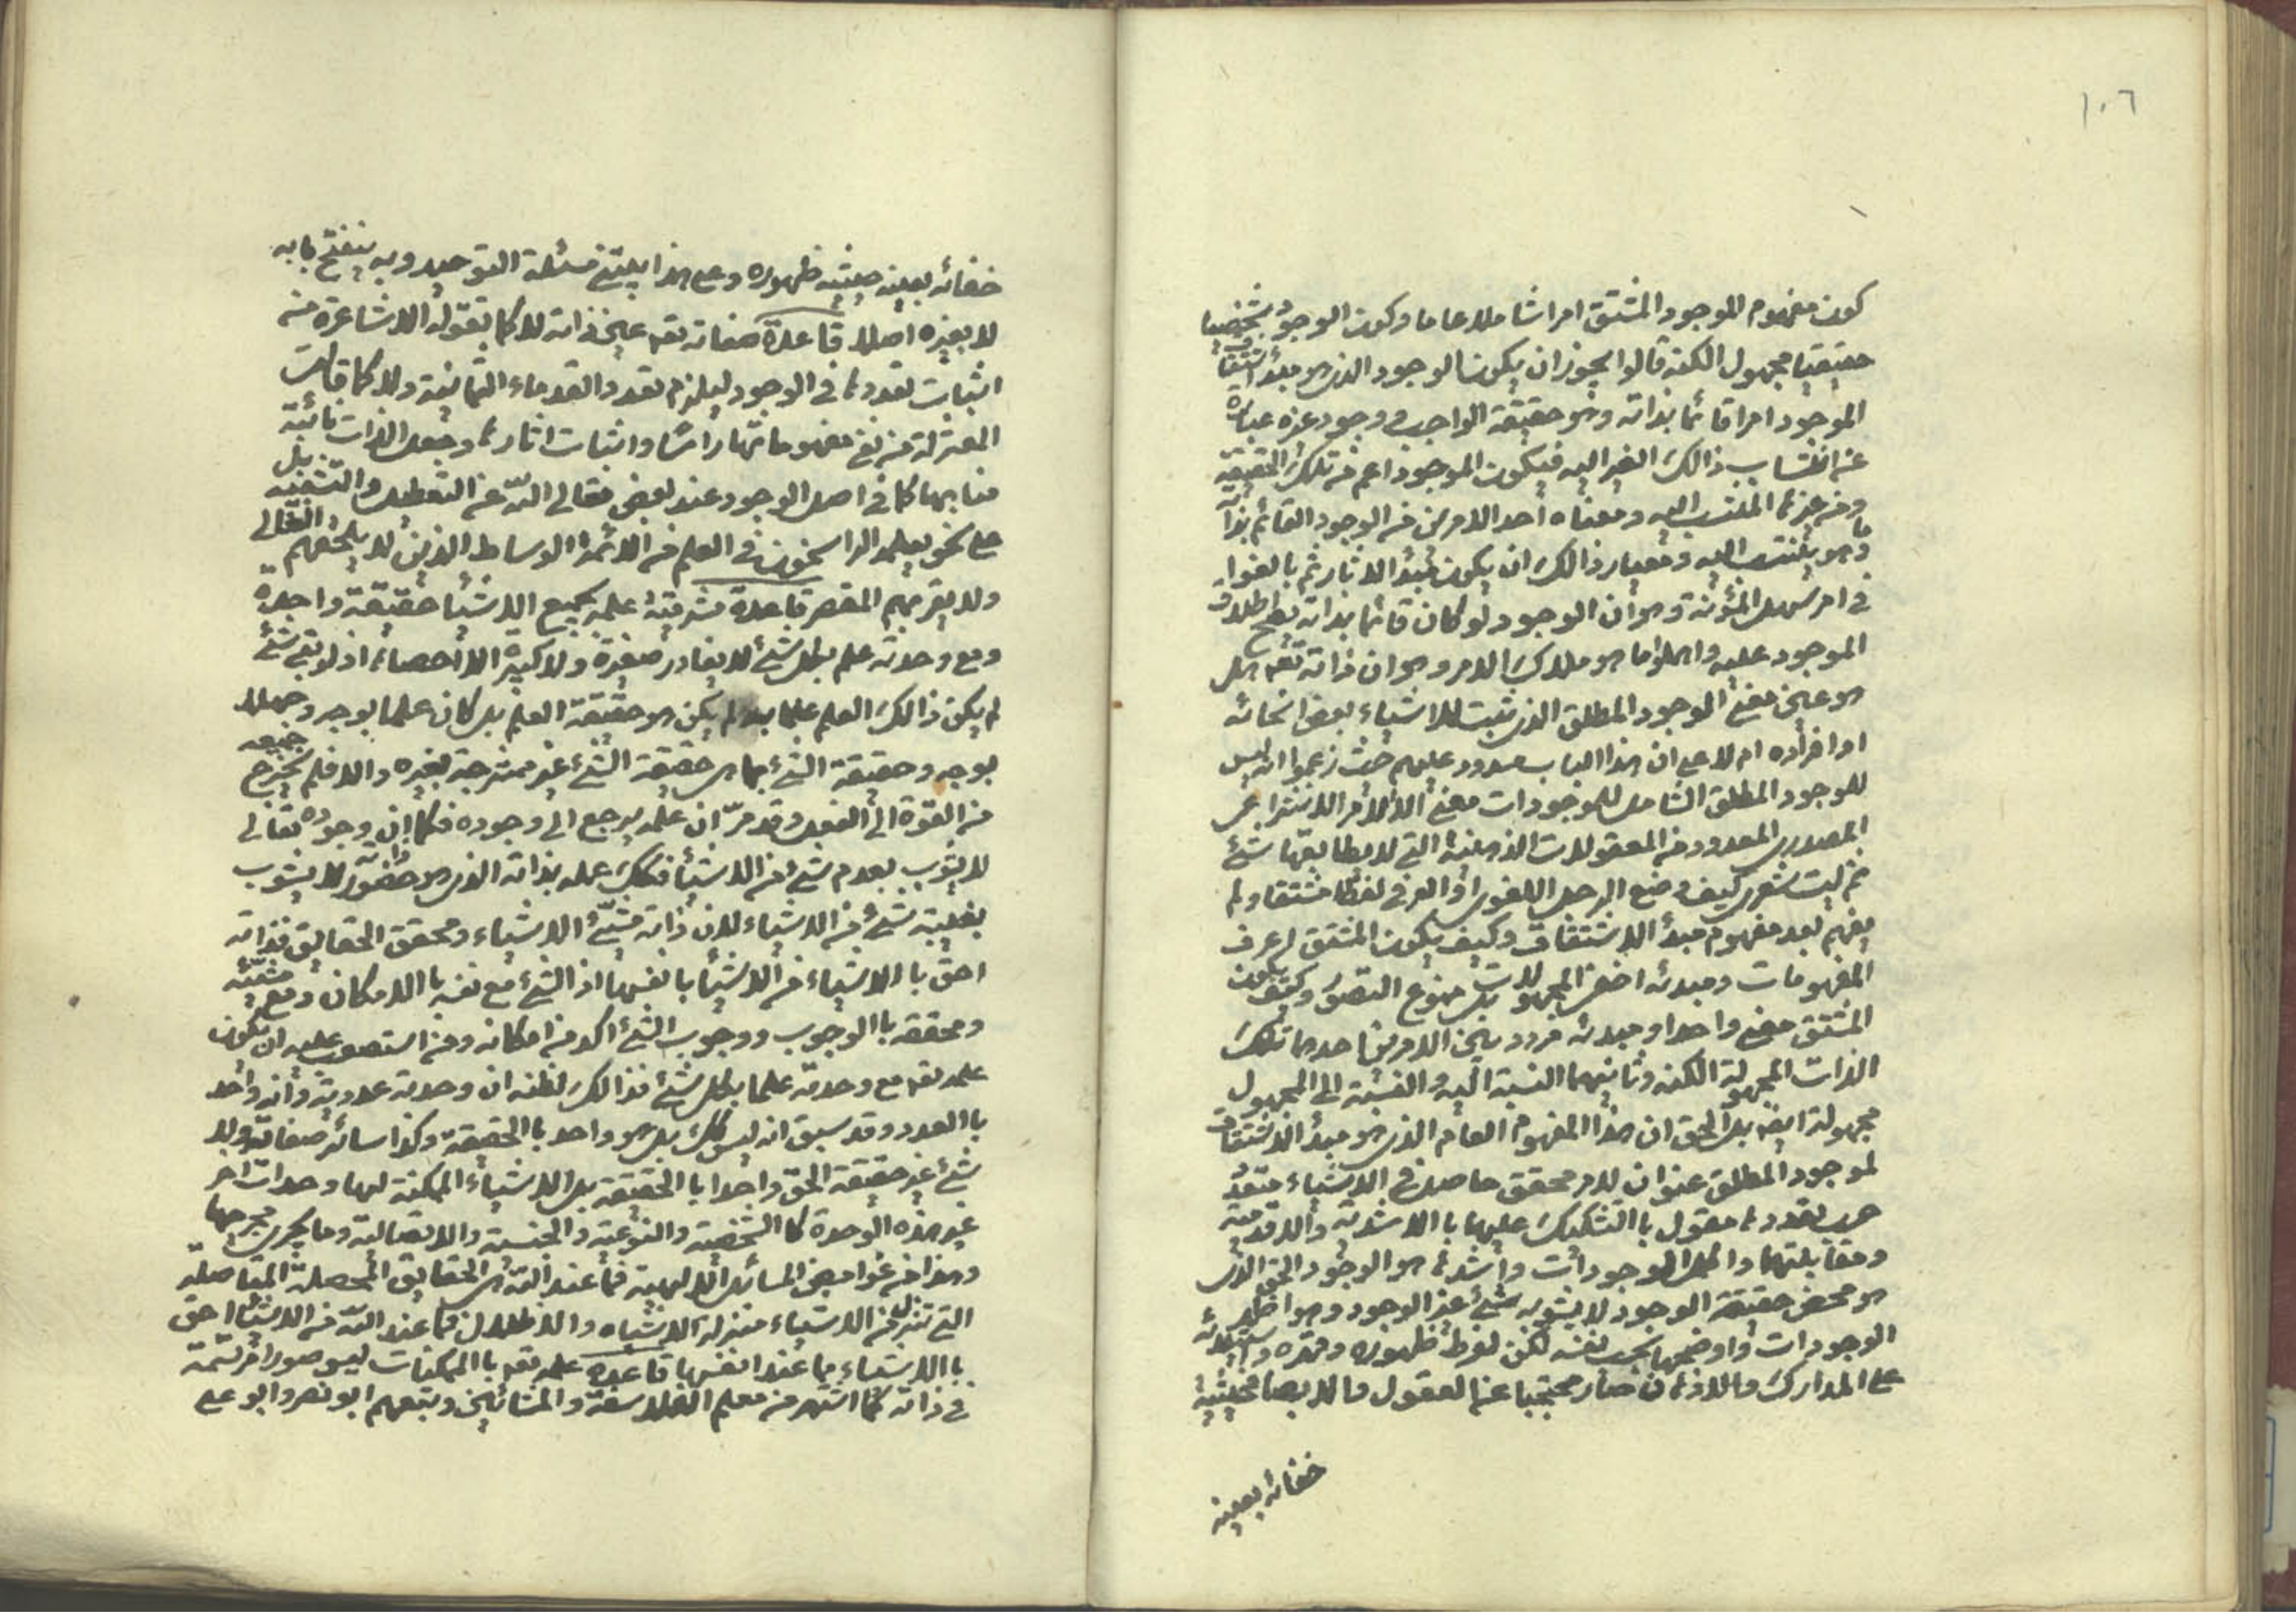 ١٠٦
كون مفهوم الموجود المشتق امرا شاملا عاما وكون الوجود شخصيا
حقيقيا مجهول الكنه قالوا يجوز ان يكون الوجود الذى هو مبدأ اشتقاق
الموجود امرا قائما بذاته وهو حقيقة الواجب و وجود غيره عبارة
عن انتساب ذالك الغير اليه فيكون الموجود اعم من تلك الحقيقة
ومن غيرها المنتسب اليه ومعناه احد الامرين من الوجود القائم بذاته
وما هو ينتسب اليه ومعيار ذالك ان يكون مبدأ الاثار ثم بالغوا
فى امر سهل المؤنة وهو ان الوجود لو كان قائما بذاته يصح اطلاق
الموجود عليه واهملوا ما هو ملاك الامر وهو ان ذاته تعه هل
هو عين معنى الوجود المطلق الذى تثبت للاشياء بعض انحائه
او افراده ام لا على ان هذا الباب مسدود عليهم حيث زعموا انه ليس
للوجود المطلق الشامل للموجودات معنى الا الامر الانتزاعى
المصدرى المعدود من المعقولات الذهنية التى لا يطابقها شئ
ثم ليت شعرى كيف وضع الرجل اللغوى او العرفى لفظا مشتقا ولم
يفهم بعد مفهوم مبدأ الاشتقاق وكيف يكون المشتق اعرف
المفهومات ومبدئه اخفى المجهولات بل ممنوع التصور وكيف يكون
المشتق معنى واحدا ومبدئه مردد بين الامرين احدهما تلك
الذات المجهولة الكنه وثانيهما النسبة اليه والنسبة الى المجهول
مجهولة ايضه بل الحق ان هذا المفهوم العام الذى هو مبدأ الاشتقاق
لموجود المطلق عنوان لامر محقق حاصل فى الاشياء متعدد
حسب تعددها مقول بالتشكيك عليها بالاشدية والاقدمية
ومقابلتهما واكمل الوجودات واشدها هو الوجود الحق الذى
هو محض حقيقة الوجود لا يشوبه شئ غير الوجود وهو اظهر
الوجودات واوضحها بحسب نفسه لكن لفرط ظهوره وقهره واستيلائه
على المدارك والاذهان صار محتجبا عن العقول والابصار فحيثية
خفائه بعينه
خفائه بعينه حيثية ظهوره وعلى هذا يبتنى مسئلة التوحيد وبه ينفتح بابه
لا بغيره اصلا قاعدة صفاته تعه عين ذاته لا كما تقوله الاشاعرة من
اثبات تعددها فى الوجود ليلزم تعدد القدماء الثمانية ولا كما قالت
المعتزلة من نفى مفهوماتها راسا واثبات اثارها وجعل الذات نائبة
منابها كما فى اصل الوجود عند بعض تعالى الله عن التعطيل والتشبيه بل
على نحو يعلمه الراسخون فى العلم من الائمة الوساط الذين لا يلحقهم الغالى
ولا يفوتهم المقصر قاعدة مشرقية علمه بجميع الاشيا حقيقة واحدة
ومع وحدته علم بكل شئ لا يغادر صغيرة ولا كبيرة الا احصاها اذ لو بقى شئ
لم يكن ذالك العلم علما به لم يكن هو حقيقة العلم بل كان علما بوجه وجهلا
بوجه وحقيقة الشئ بما هى حقيقة الشئ غير ممتزجة بغيره والا فلم يخرج جميعه
من القوة الى الفعل وقد مرّ ان علمه يرجع الى وجوده فكما ان وجوده تعالى
لا يشوب بعدم شئ من الاشيأ فكك علمه بذاته الذى هو حضور لا يشوب
بغيبة شئ من الاشياء لان ذاته مشيّئ الاشياء ومحقق الحقايق فذاته
احق باالاشياء من الاشيأ بانفسها اذ الشئ مع نفسه باالامكان ومع مشيّئه
ومحققه باالوجوب ووجوب الشئ اكد من امكانه ومن استصعب عليه ان يكون
علمه تعه مع وحدته علما بكل شئ فذالك لظنه ان وحدته عددية وانه واحد
باالعدد وقد سبق انه ليس كك بل هو واحد باالحقيقة وكذا سائر صفاته ولا
شئ غير حقيقة الحق واحدا باالحقيقة بل للاشياء الممكنة لها وحدات اخر
غير هذه الوحدة كاالشخصية والنوعية والجنسية والاتصالية وما يجرى مجراها
وهذا من غوامض المسائل الالهية فما عند الله هى الحقايق المحصلة المتاصلة
التى تنزل من الاشياء منزلة الاشباه والاظلال فما عند الله من الاشيأ احق
باالاشياء مما عند انفسها قاعده علمه تعه باالممكنات ليس صورا مرتسمة
فى ذاته كما اشتهر من معلم الفلاسفة والمشائين وتبعهم ابو نصر وابو على